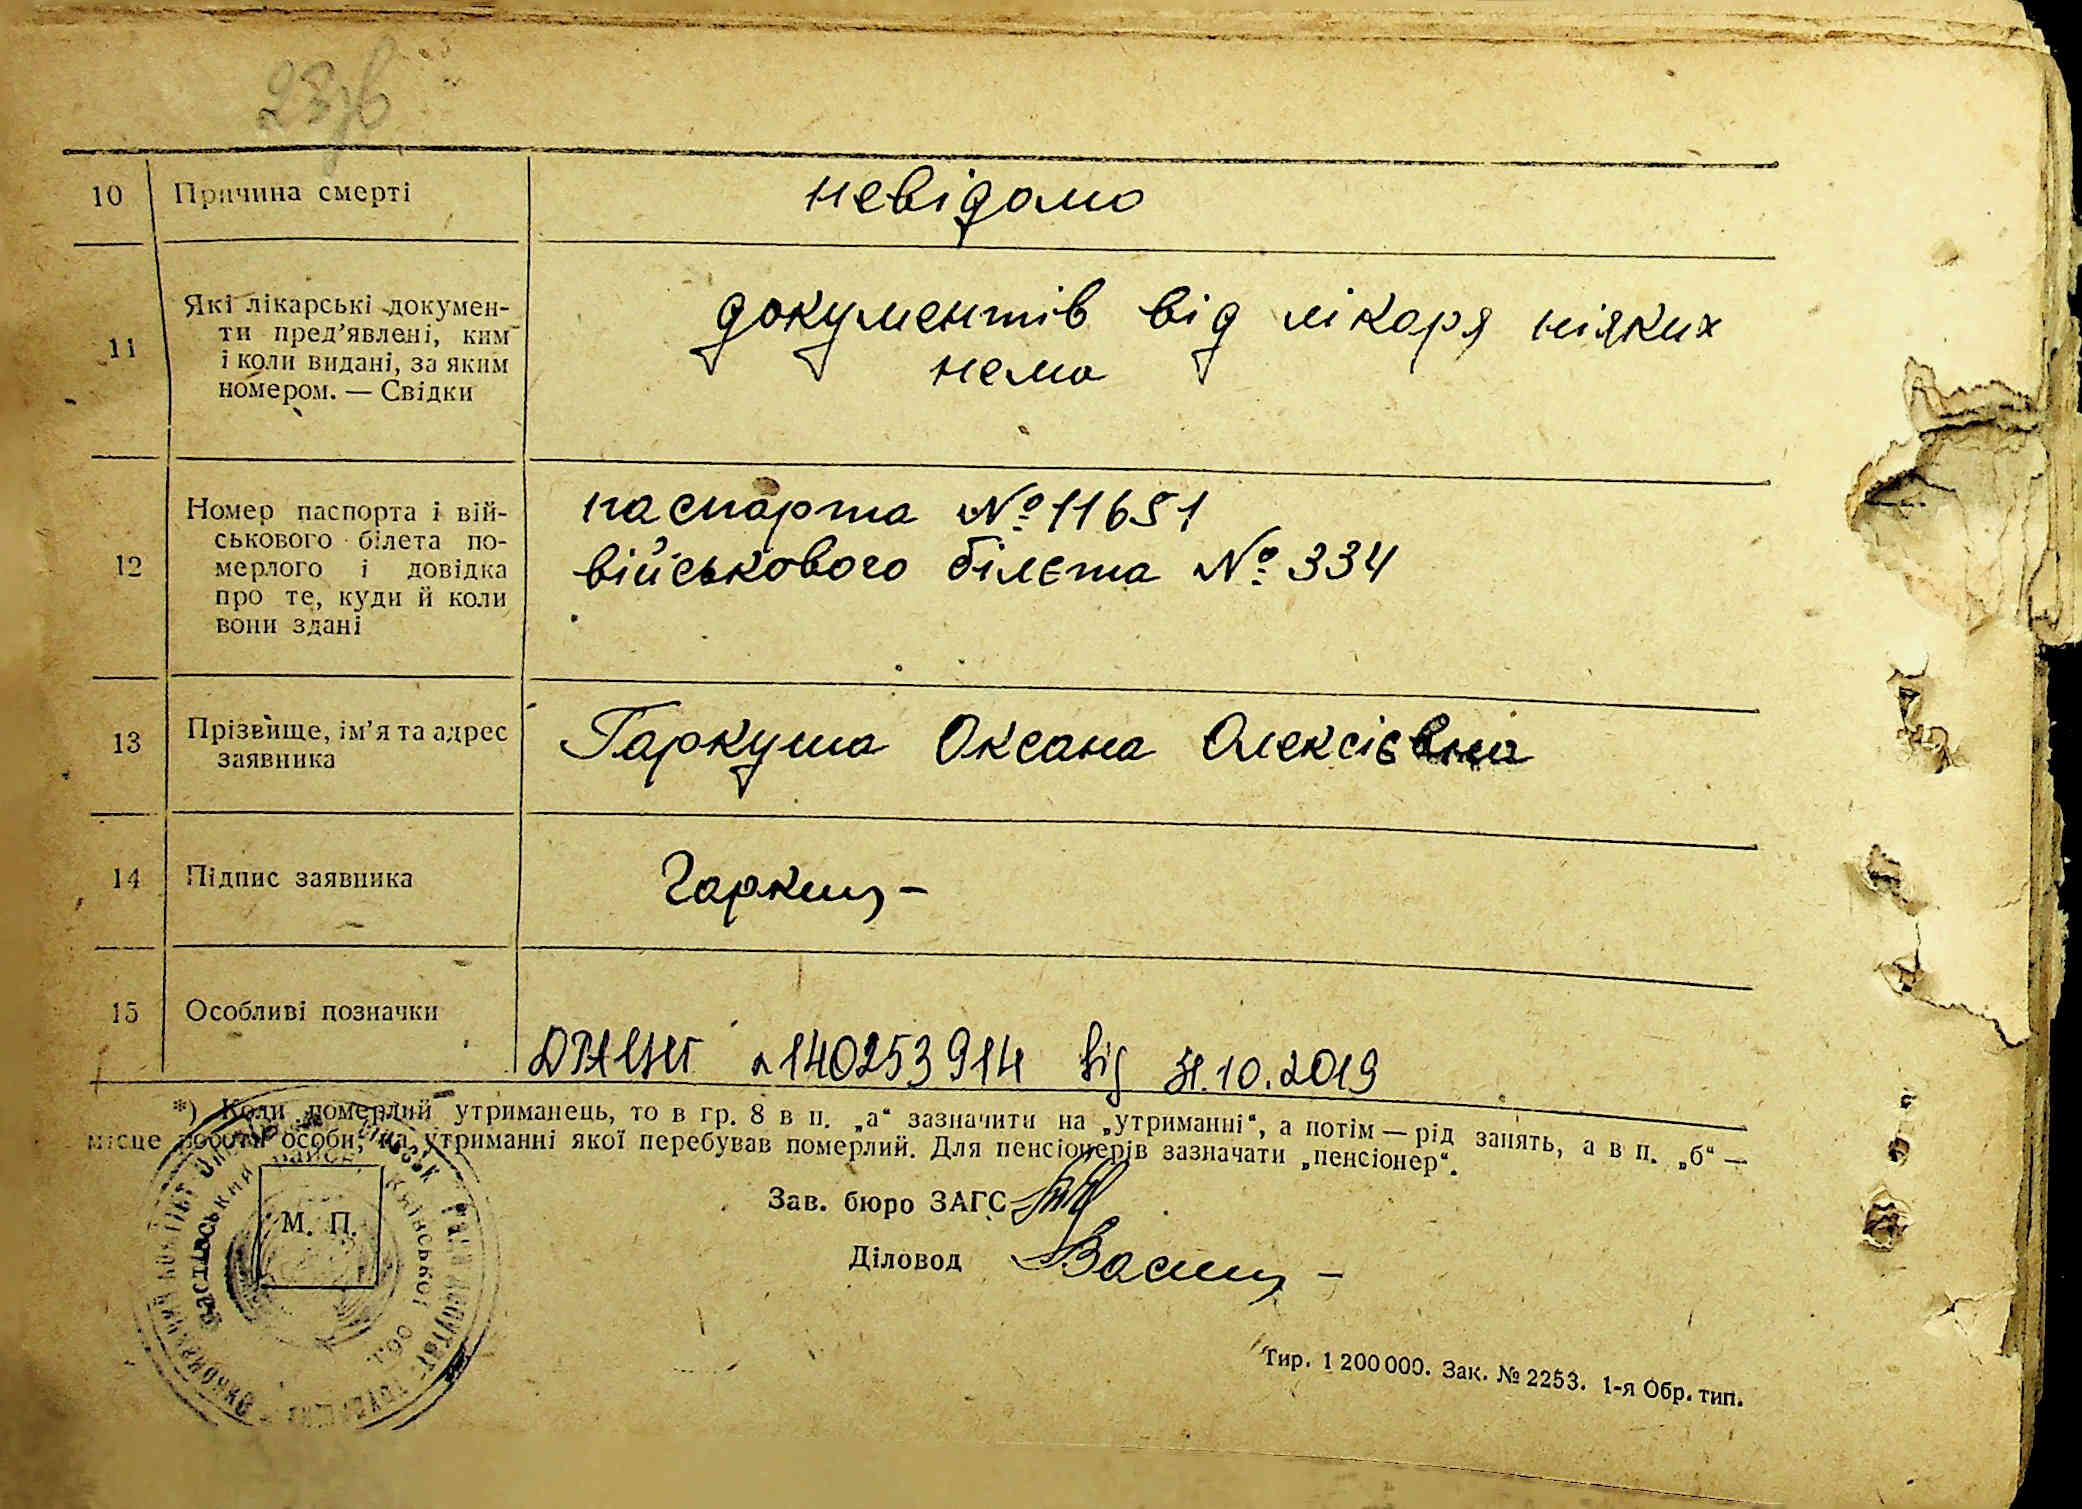 23зв
10 Причина смерті невідомо
11 Які лікарські докумен-
ти пред’явлені, ким
і коли видані, за яким
номером. — Свідки
документів від лікаря ніяких
нема
12 Номер паспорта і вій-
ськового білета по-
мерлого і довідка
про те, куди й коли
вони здані
паспорта № 11651
військового білєта № 334
13 Прізвище, ім’я та адрес
заявника
Гаркуша Оксана Олексієвна
14 Підпис заявника
15 Особливі позначки
140253914 від 31.10.2019
*) Коли померлий утриманець, то в гр. 8 в п. „а“ зазначити на „утриманні“, а потім — рід занять, а в п. „б“ —
місце роботи особи, на утриманні якої перебував померлий. Для пенсіонерів зазначати „пенсіонер“.
М. П.
Київської обл.
Зав. бюро ЗАГС
Діловод
Тир. 1 200 000. Зак. № 2253. 1-я Обр. тип.